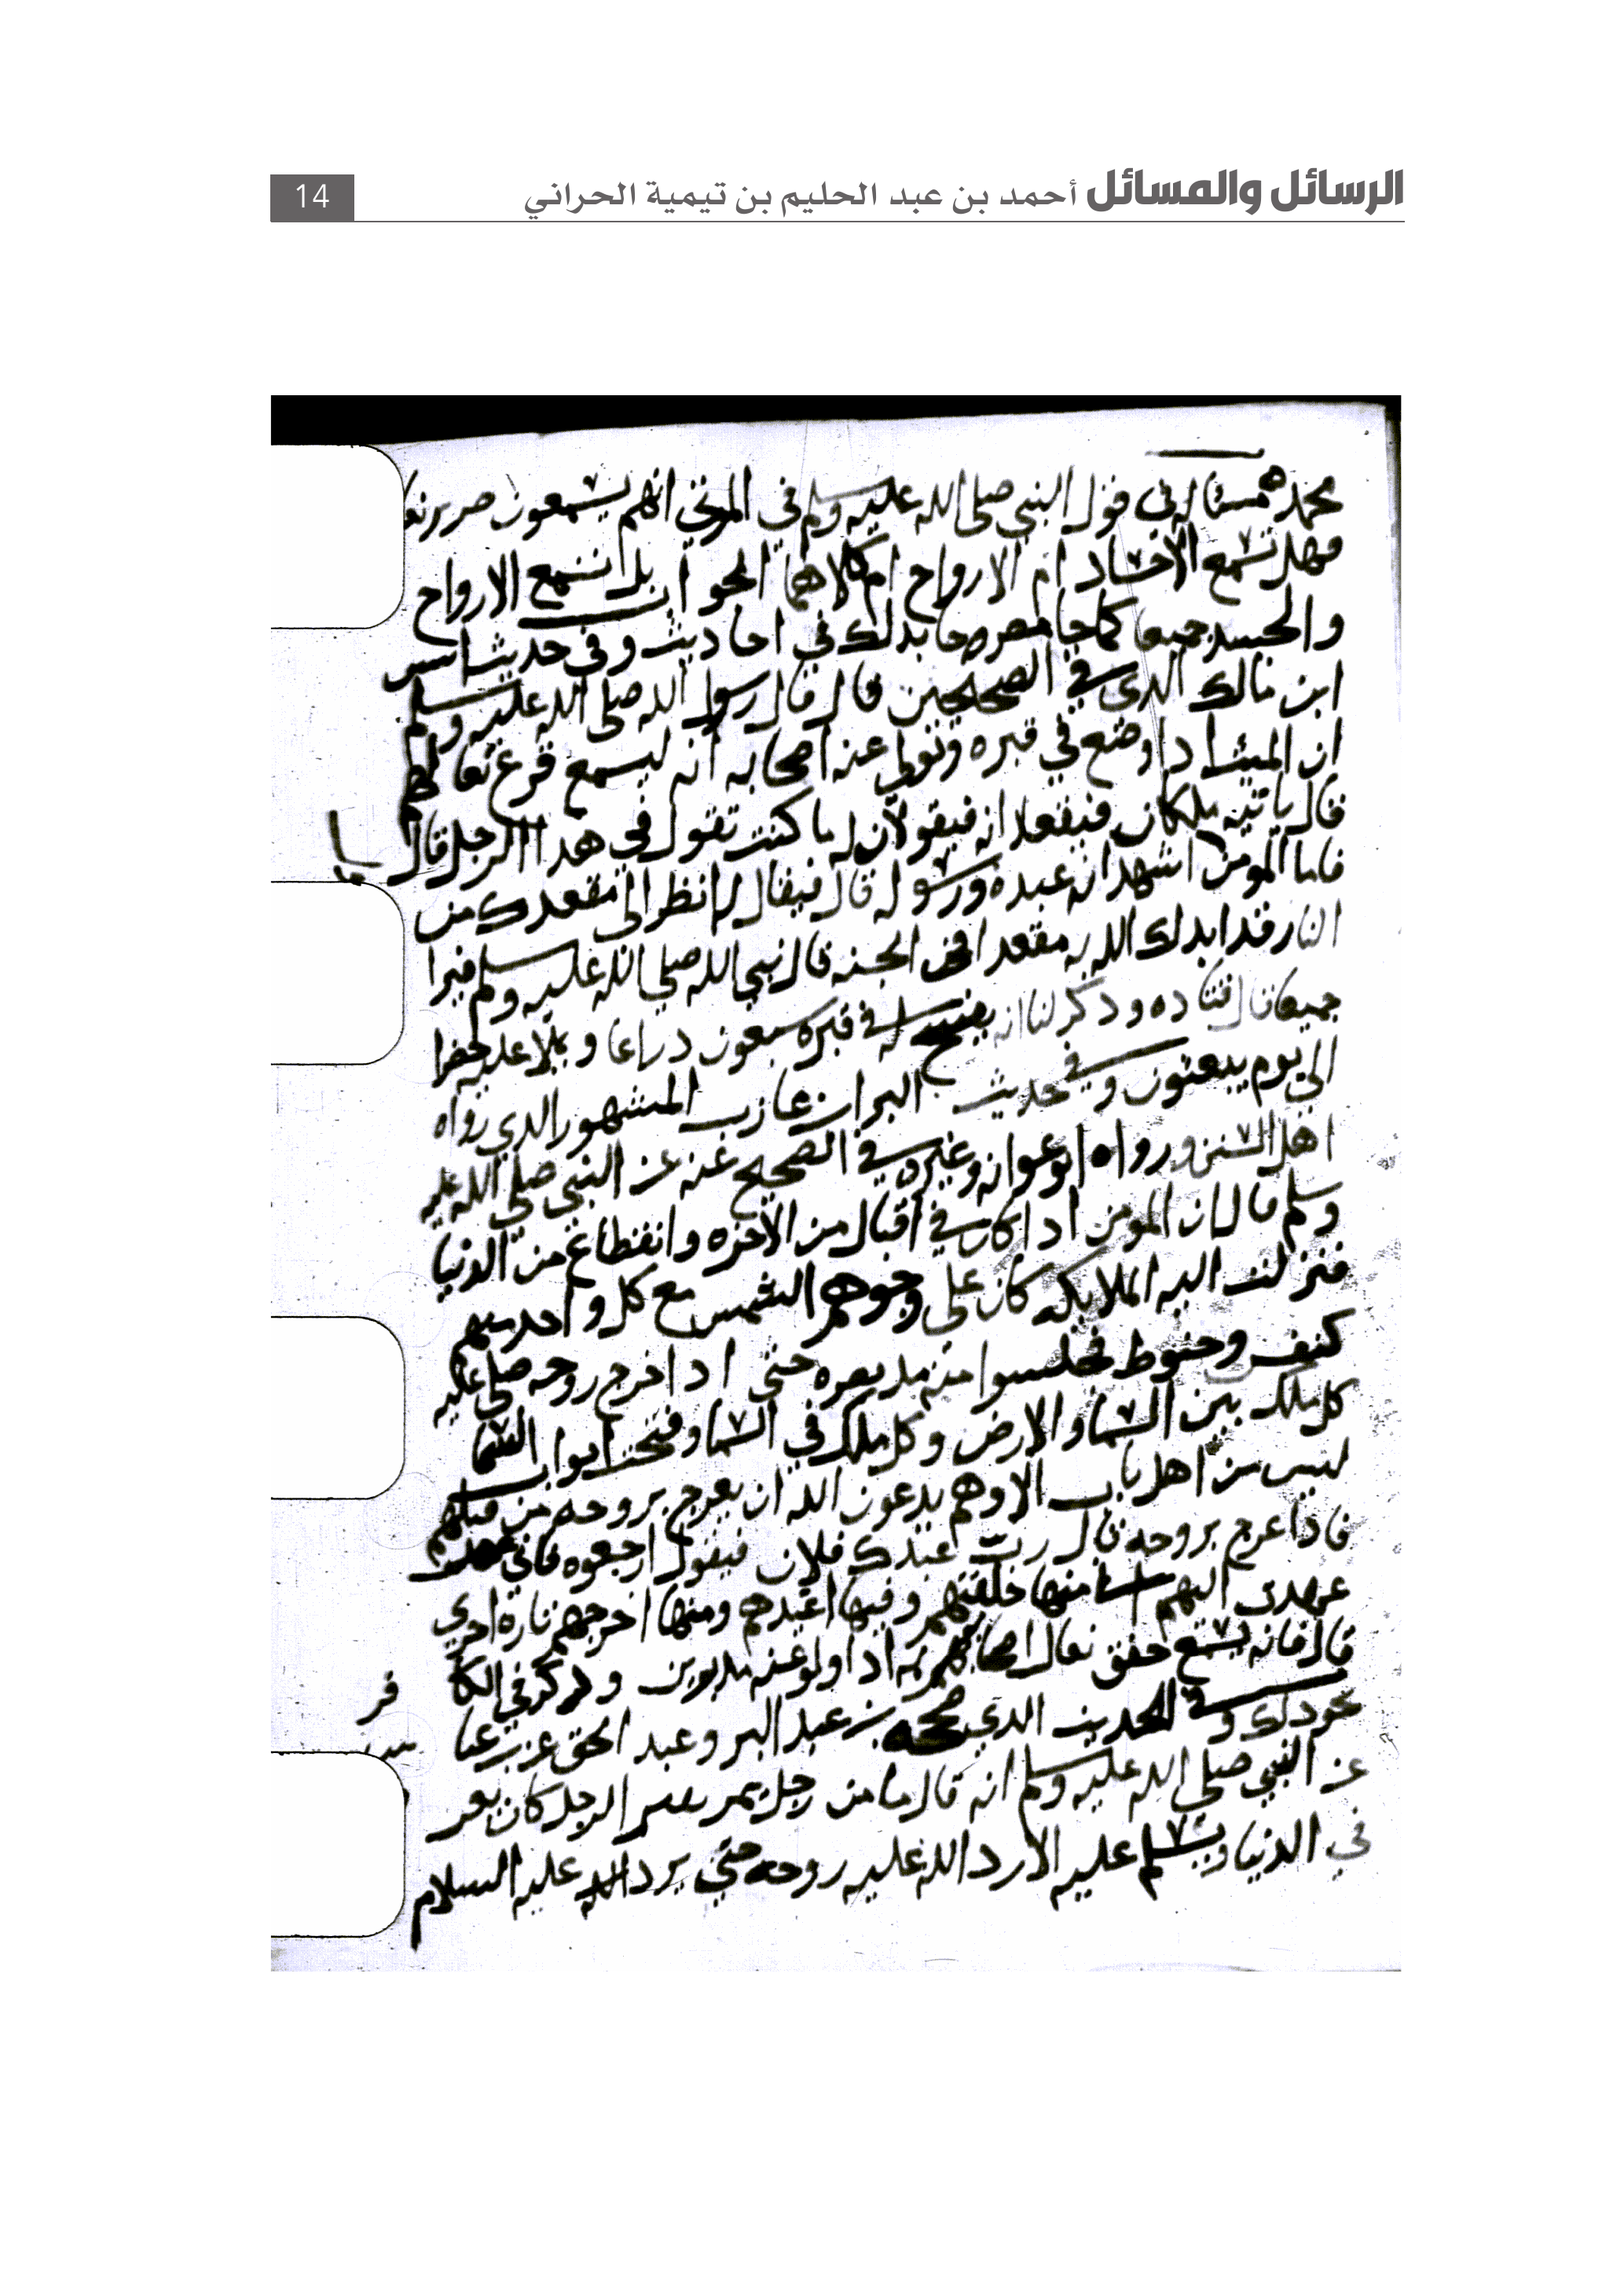 الرسائل والمسائل أحمد بن عبد الحليم بن تيمية الحراني
14
محمد مسئله في قول النبي صلى الله عليه وسلم في الموتي انهم يسمعون صرير
فهل تسمع الاجساد ام الارواح ام كلاهما الجواب بل تسمع الارواح
والجسد جميعا كما جا مصرحا بدلك في احاديث وفي حديث انس
ابن مالك الدي في الصحيحين قال قال رسول الله صلى الله عليه وسلم
ان الميت ادا وضع في قبره وتولى عنه اصحابه انه ليسمع قرع نعالهم
قال ياتيه ملكان فيقعدانه فيقولان له ما كنت تقول في هدا الرجل قال
فاما المومن اشهد انه عبده ورسوله قال فيقال له انظر الى مقعدك من
النار قد ابدلك الله به مقعدا في الجنه قال نبي الله صلي الله عليه وسلم فيرا
جميعا قال قتاده ودكر لنا انه يفسح له في قبره سبعون دراعا ويملا عليه خضرا
الى يوم يبعثون وفي حديث البرا بن عازب المشهور الدي رواه
اهل السنن ورواه ابو عوانه وغيره في الصحيح عنه عن النبي صلي الله عليه
وسلم قال ان المومن ادا كان في اقبال من الاخره وانقطاع من الدنيا
فنزلت اليه الملايكه كان على وجوههم الشمس مع كل واحد منهم
كنف وحنوط فجلسوا منه مد بصره حتى ادا خرج روحه صلى عليه
كل ملك بين السما والارض وكل ملك في السما وفتحت ابواب السما
ليس من اهل باب الا وهم يدعون الله ان يعرج بروحه من قبلهم
فادا عرج بروحه قال رب عبدك فلان فيقول ارجعوه فاني
عهدت اليهم اني منها خلقتهم وفيها اعيدهم ومنها اخرجهم تارة اخري
قال فانه يسمع خفق نعال اصحابهم ادا ولو عنه مدبرين ودكر في الكا
فر
نحو دلك وفي الحديث الدي صححه بن عبد البر وعبد الحق عن بن عبا
س
عن النبي صلى الله عليه وسلم انه قال ما من رجل يمر بقبر الرجل كان يعر
في الدنيا ويسلم عليه الا رد الله عليه روحه حتى يرد الله عليه السلام